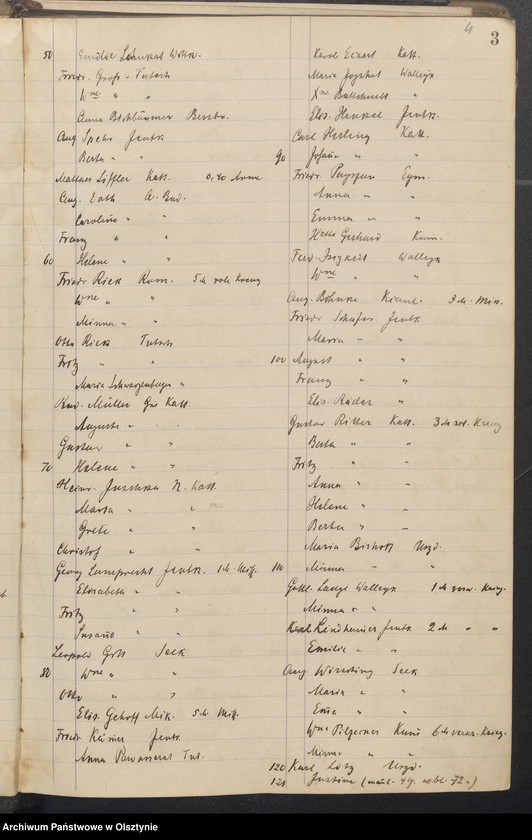 4
3
50 Emilie Lohnkat Wottk.
Friedr. Groß - Tutsch
Wne " "
Anna Buchbäumer
Aug. Spehr Jentk.
Berta " "
Mathes Siffler Katt. 0,20 Arme
Aug. Dath A. Bud.
Caroline " "
Franz " "
60 Helene " "
Friedr. Rieck Rum. 5 M. rote Kreuz
Wne " "
Minna " "
Otto Rieck Tutsch
Fritz " "
Maria Schwarzenberger "
Rud. Müller Gut Katt.
Auguste " "
Gustav " "
70 Helene " "
Heinr. Juschka N. Katt.
Marta " "
Grete " "
Christof " "
Georg Lamprecht Jentk. 1 M. Miss.
Elisabeth " "
Fritz " "
Susanne " "
Leopold Gott Seek
80 Wne " "
Otto " "
Elis. Gehoff Mik. 5 M. Miss.
Friedr. Käimer Jentk.
Anna Rewasserat Tut.
Karol. Eckert Katt.
Maria Joggkat Wallegk
Xne "
Elis. Henkel Jentk.
Carl Herling Katt.
90 Johanne " "
Friedr. Eym.
Anna " "
Emma " "
Gerhard Kum.
Ferd. Joggkeit Wallegk
Wne " "
Aug. Böhnke 3 M. Miss.
Friedr. Schäfer Jentk.
Maria " "
100 August " "
Franz " "
Elis. Räder "
Gustav Ritter Katt. 3 M. rot. Kreuz
Berta " "
Fritz " "
Anna " "
Helene " "
Berta " "
Maria Bischoff Uszd.
110 Minna " "
Gottl. Lange Wallegk 1 M. verw. Krieg.
Minna " "
Karl Lindheimer Jentk. 2 M. " "
Emilie " "
Aug. Seek
Maria " "
Emma " "
Wne Pilzecker Kum 6 M. verw. Krieg.
Minna " "
120 Karl Lotz Uszd.
121 Justine (männl. 49. weibl. 72.)
Archiwum Państwowe w Olsztynie